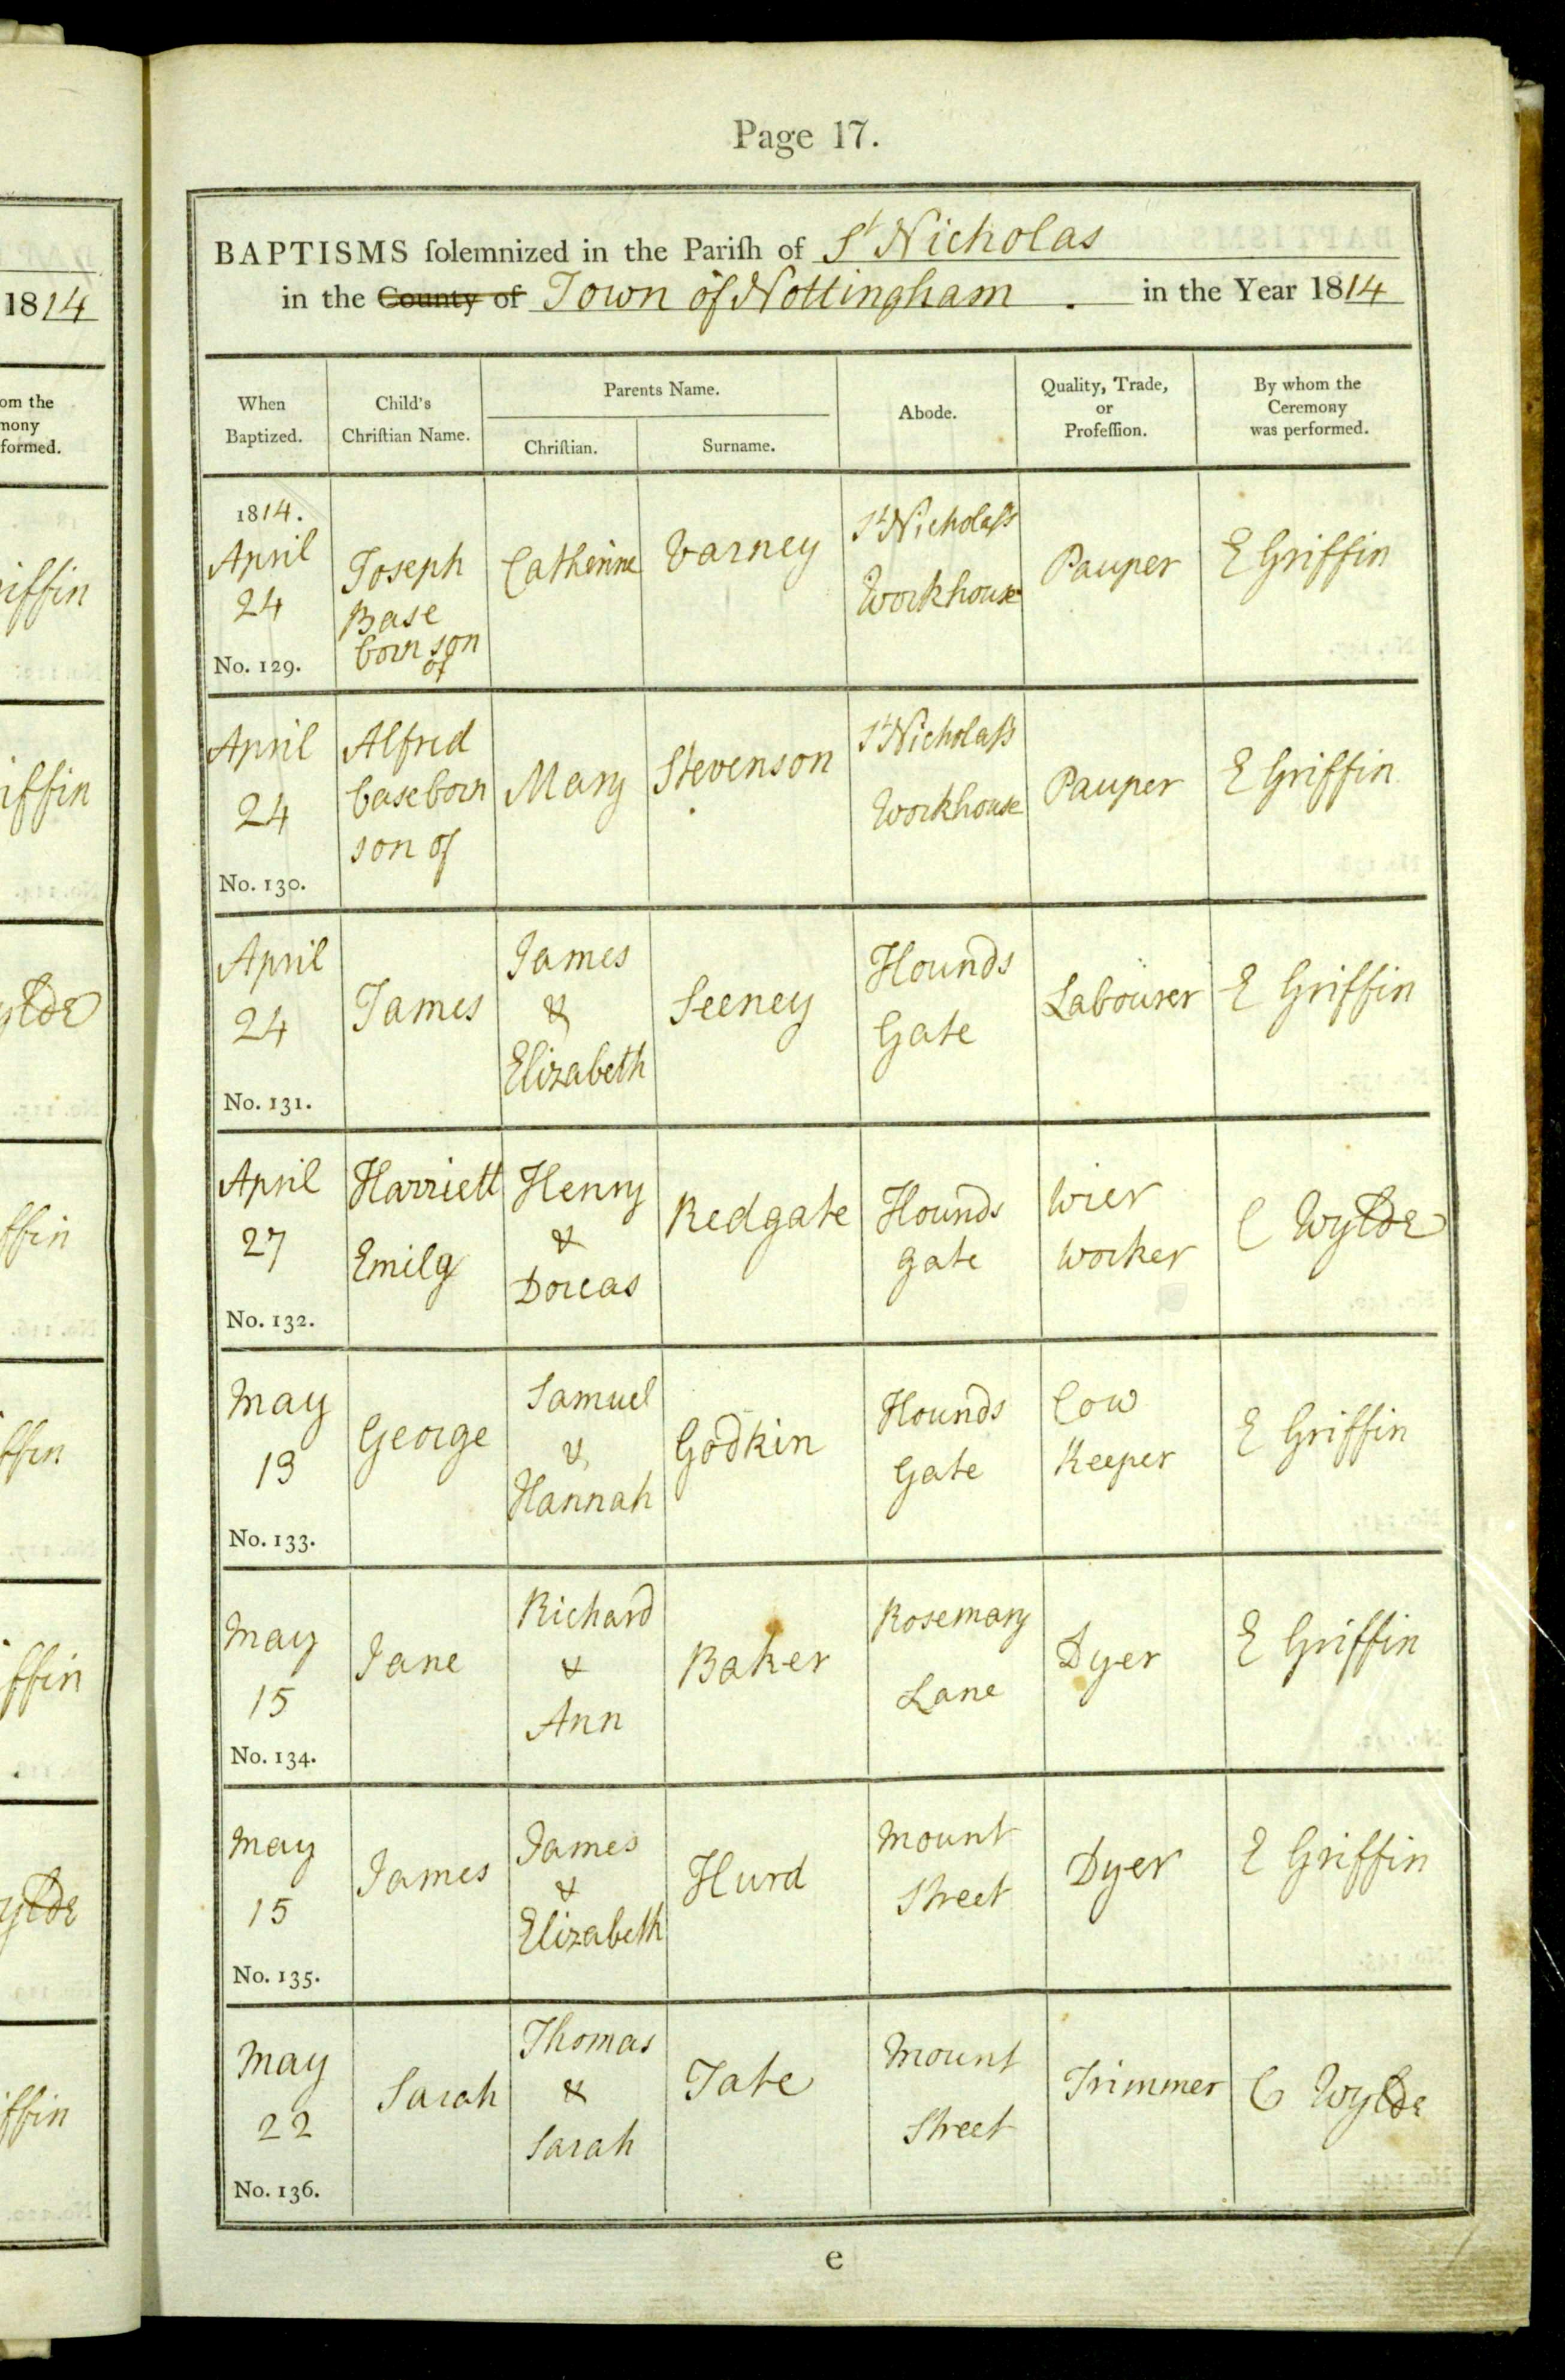 Page 17.
BAPTISMS ſolemnized in the Pariſh of St Nicholas
in the County of Town of Nottingham . in the Year 1814
When Baptized.
Child's Chriſtian Name.
Parents Name.
Chriſtian.
Surname.
Abode.
Quality, Trade, or Profeſſion.
By whom the Ceremony was performed.
1814.
April
24
No. 129.
Joseph
Base
born son
of
Catherine
Varney
St Nicholass
Workhouse
Pauper
E Griffin
April
24
No. 130.
Alfred
baseborn
son of
Mary
Stevenson
St Nicholass
Workhouse
Pauper
E Griffin
April
24
No. 131.
James
James
&
Elizabeth
Seeney
Hounds
Gate
Labourer
E Griffin
April
27
No. 132.
Harriett
Emily
Henry
&
Dorcas
Redgate
Hounds
gate
Wier
Worker
C Wylde
May
13
No. 133.
George
Samuel
&
Hannah
Godkin
Hounds
Gate
Cow
Keeper
E Griffin
May
15
No. 134.
Jane
Richard
&
Ann
Baker
Rosemary
Lane
Dyer
E Griffin
May
15
No. 135.
James
James
&
Elizabeth
Hurd
Mount
Street
Dyer
E Griffin
May
22
No. 136.
Sarah
Thomas
&
Sarah
Tate
Mount
Street
Trimmer
C Wylde
e